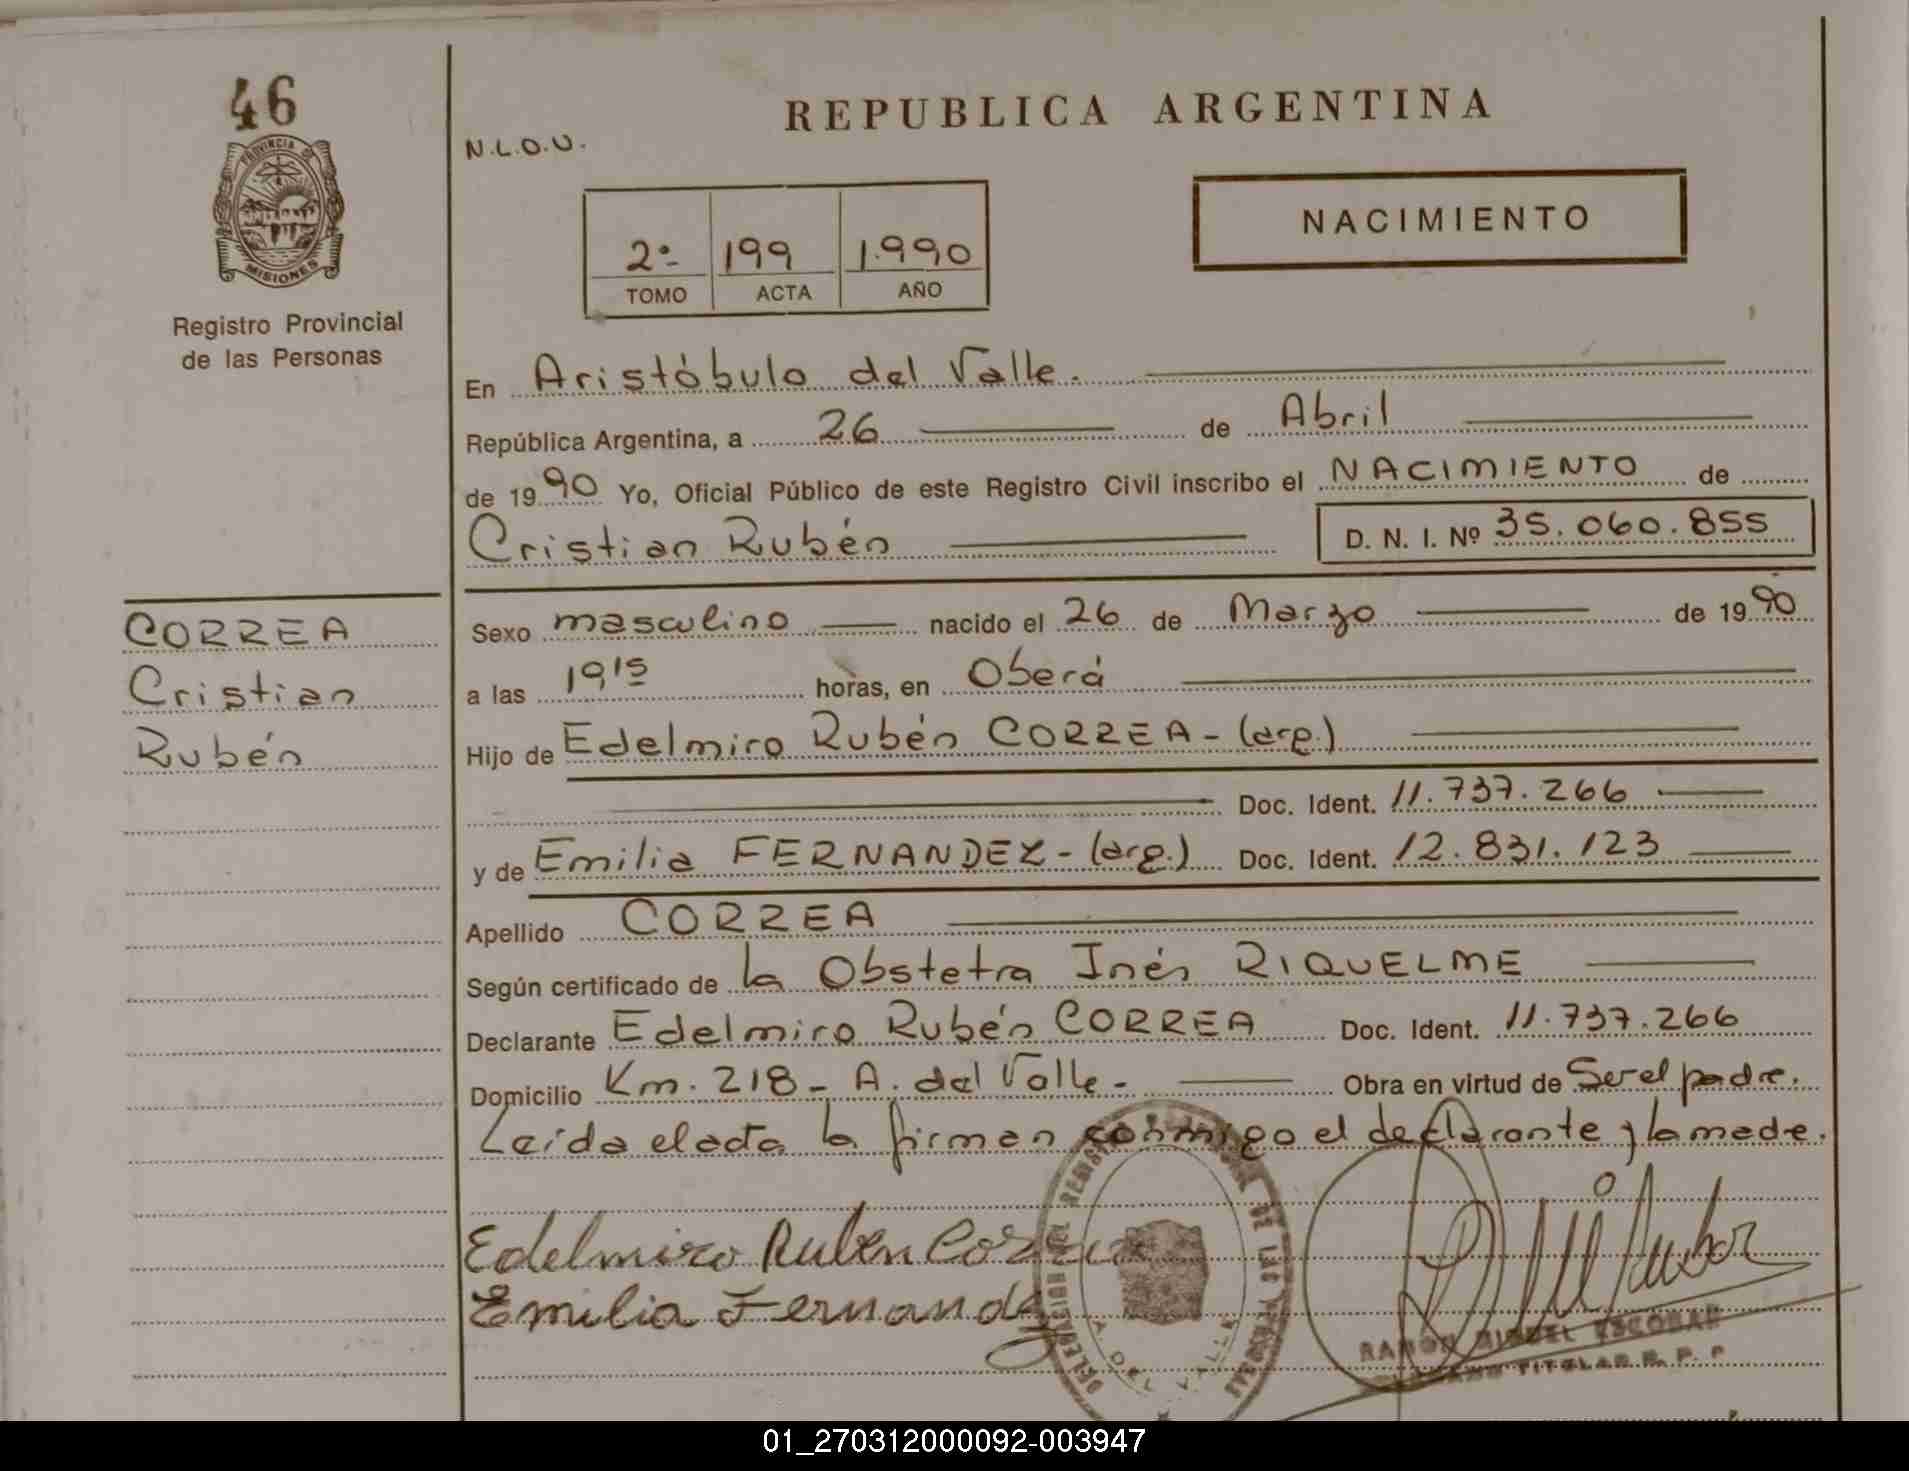 46
PROVINCIA DE
MISIONES
Registro Provincial
de las Personas
CORREA
Cristian
Rubén
REPUBLICA ARGENTINA
N.L.O.U.
NACIMIENTO
2º 199 1.990
TOMO ACTA AÑO
En Aristóbulo del Valle.
República Argentina, a 26 de Abril
de 1990 Yo, Oficial Público de este Registro Civil inscribo el NACIMIENTO de
Cristian Rubén D. N. I. Nº 35.060.855
Sexo masculino nacido el 26 de Marzo de 1990
a las 19 15 horas, en Oberá
Hijo de Edelmiro Rubén CORREA - (arg.)
Doc. Ident. 11.737.266
y de Emilia FERNANDEZ - (arg.) Doc. Ident. 12.831.123
Apellido CORREA
Según certificado de la Obstetra Inés RIQUELME
Declarante Edelmiro Rubén CORREA Doc. Ident. 11.737.266
Domicilio Km. 218 - A. del Valle - Obra en virtud de Ser el padre.
Leída el acta la firman conmigo el declarante y la madre.
Edelmiro Ruben Correa
Emilia Fernandez
A. DEL VALLE
RAMON MIGUEL ESCOBAR
TITULAR R. P. P.
01_270312000092-003947